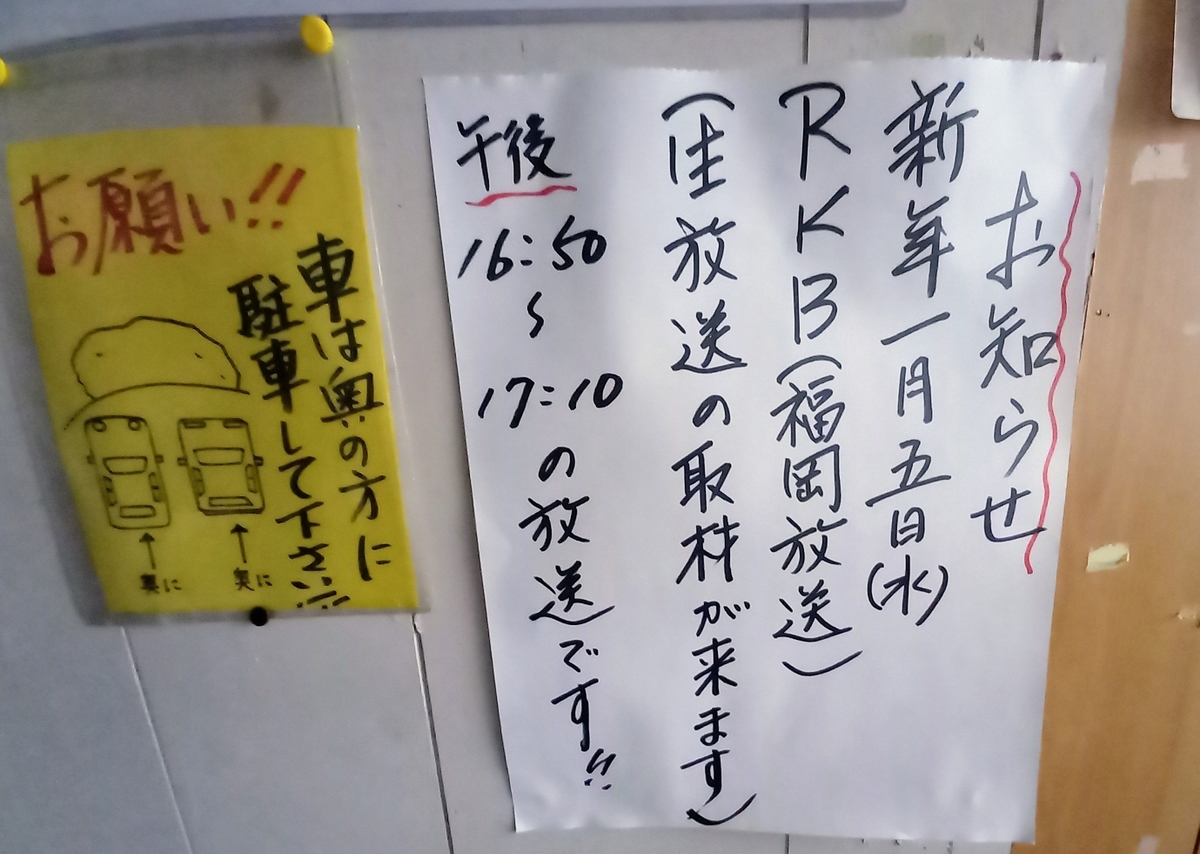 お知らせ
新年一月五日(水)
RKB(福岡放送)
(生放送の取材が来ます)
午後
16:50
〜
17:10
の放送です!!
お願い!!
車は奥の方に
駐車して下さい!!
奥に
奥に